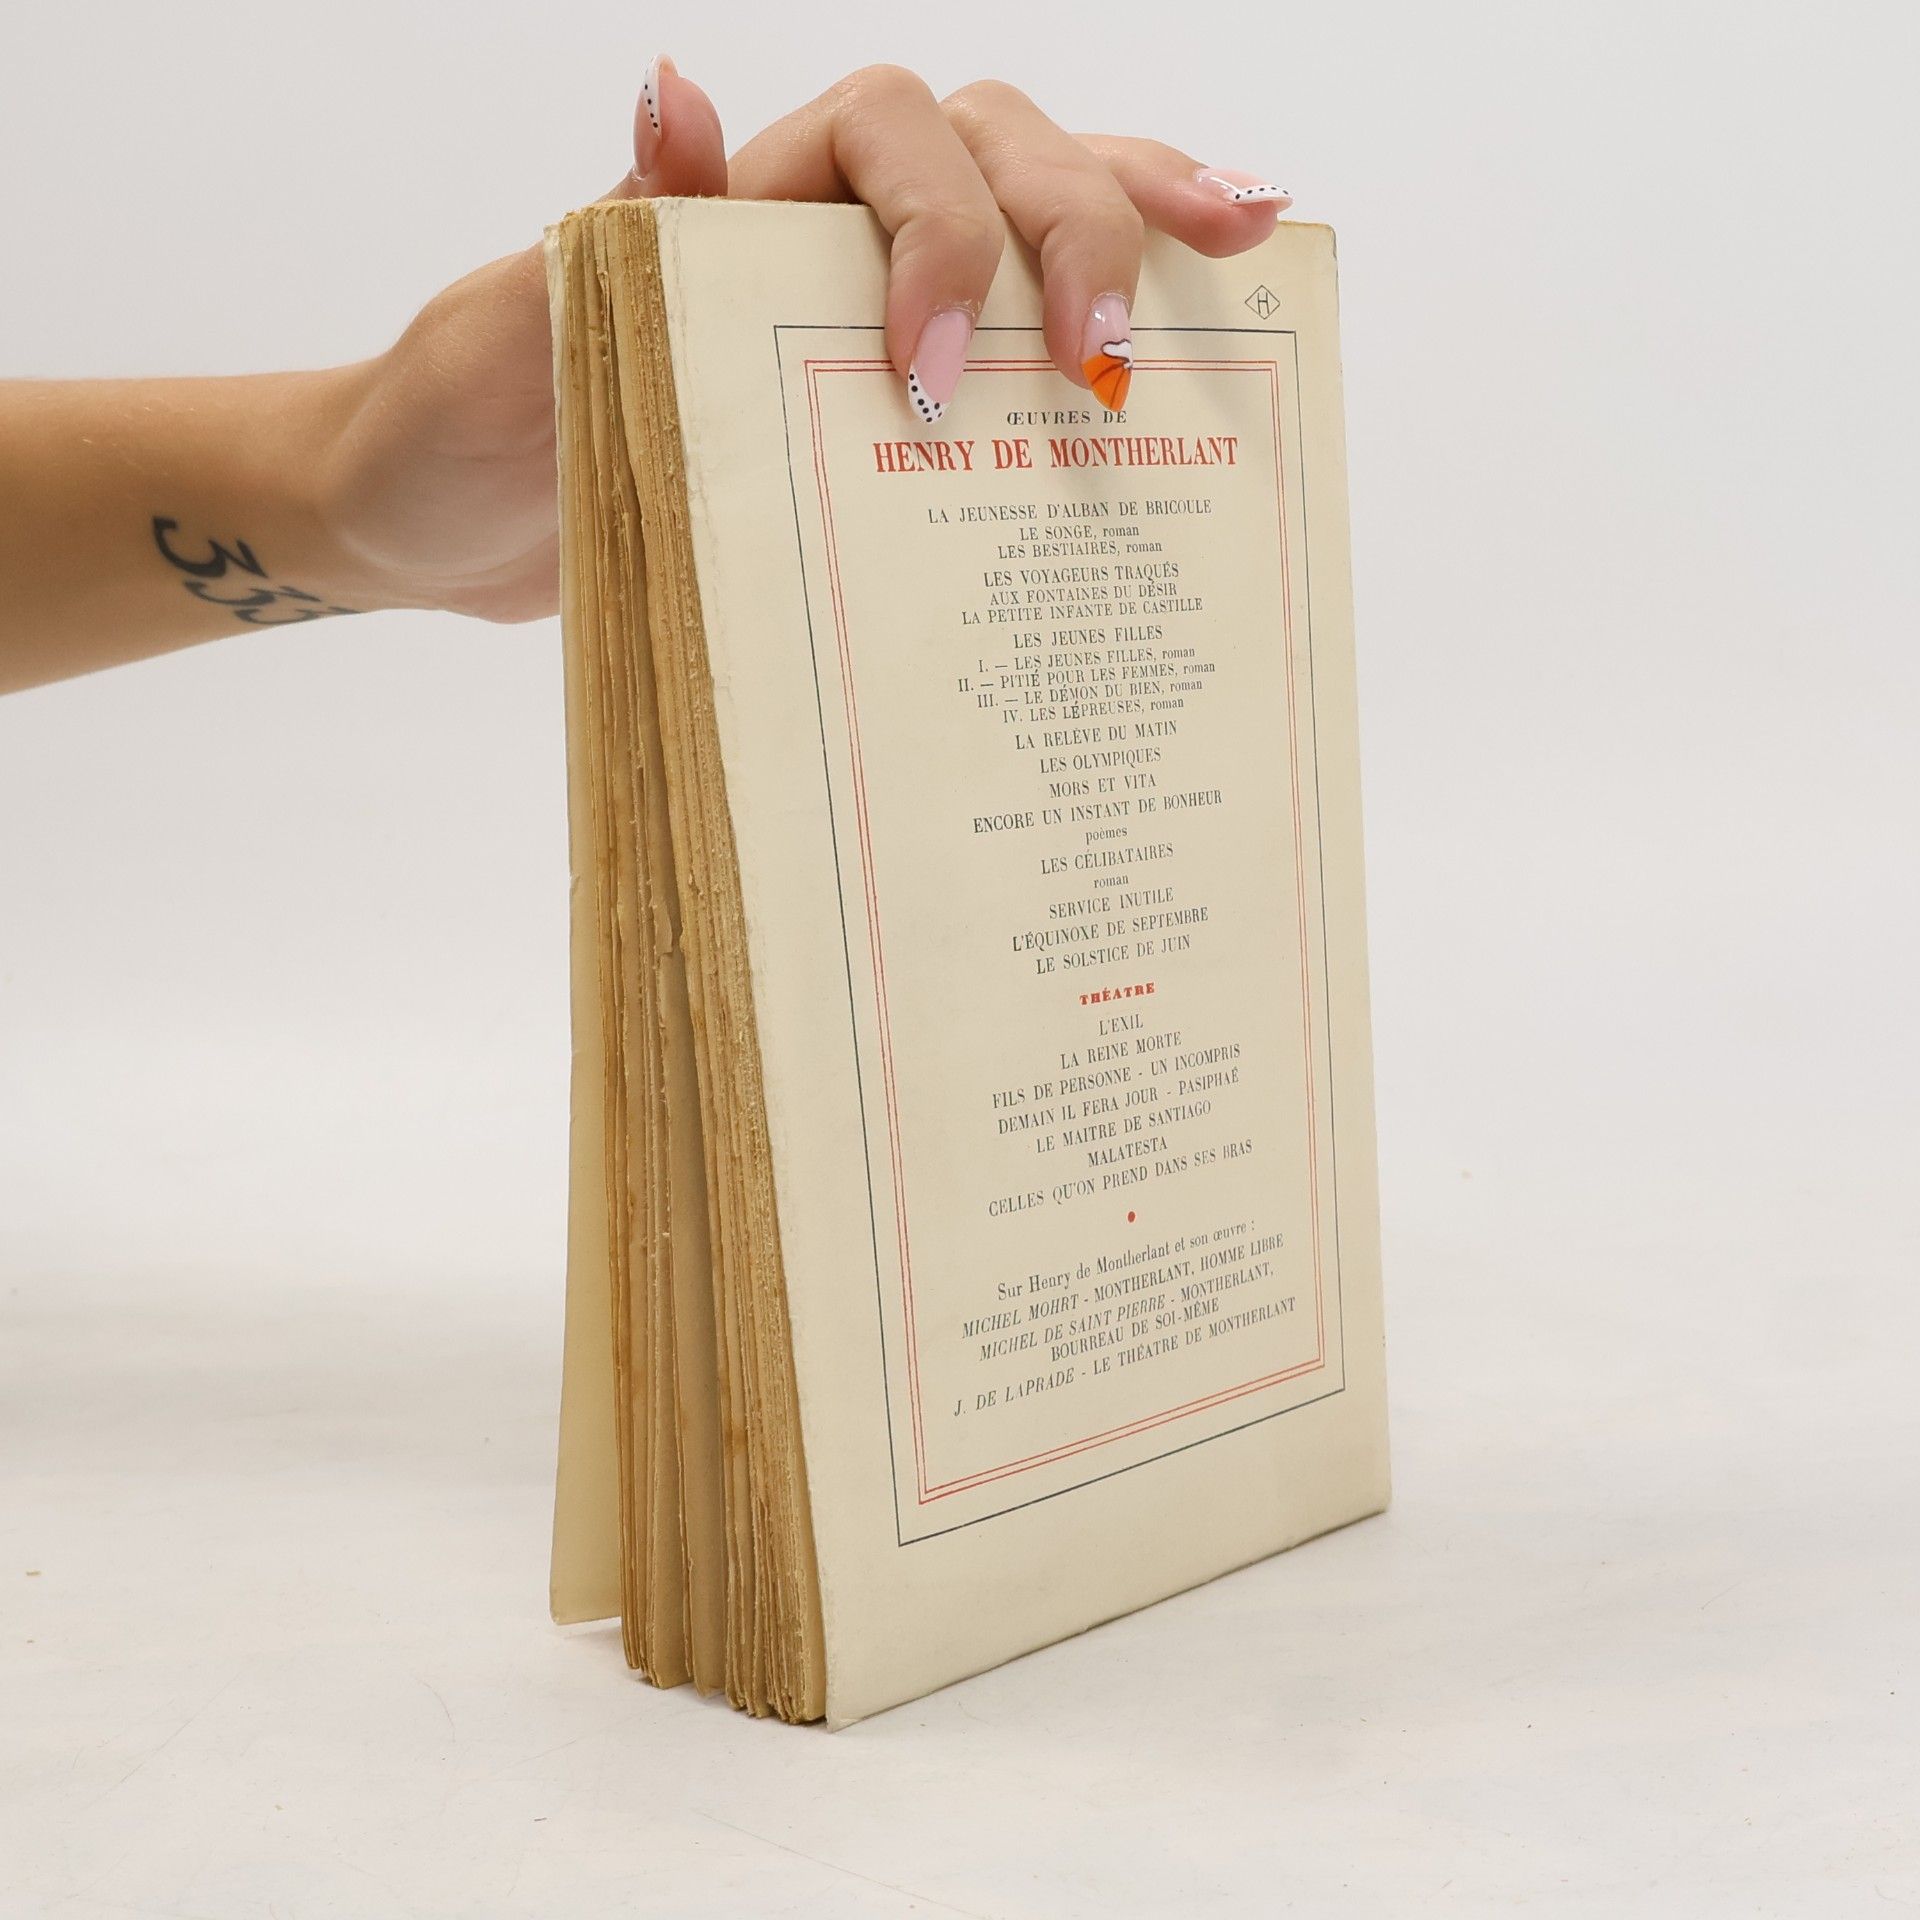 333
H
ŒUVRES DE
HENRY DE MONTHERLANT
LA JEUNESSE D'ALBAN DE BRICOULE
LE SONGE, roman
LES BESTIAIRES, roman
LES VOYAGEURS TRAQUÉS
AUX FONTAINES DU DÉSIR
LA PETITE INFANTE DE CASTILLE
LES JEUNES FILLES
I. — LES JEUNES FILLES, roman
II. — PITIÉ POUR LES FEMMES, roman
III. — LE DÉMON DU BIEN, roman
IV. LES LÉPREUSES, roman
LA RELÈVE DU MATIN
LES OLYMPIQUES
MORS ET VITA
ENCORE UN INSTANT DE BONHEUR
poèmes
LES CÉLIBATAIRES
roman
SERVICE INUTILE
L'ÉQUINOXE DE SEPTEMBRE
LE SOLSTICE DE JUIN
THÉATRE
L'EXIL
LA REINE MORTE
FILS DE PERSONNE - UN INCOMPRIS
DEMAIN IL FERA JOUR - PASIPHAÉ
LE MAITRE DE SANTIAGO
MALATESTA
CELLES QU'ON PREND DANS SES BRAS
Sur Henry de Montherlant et son œuvre :
MICHEL MOHRT - MONTHERLANT, HOMME LIBRE
MICHEL DE SAINT PIERRE - MONTHERLANT,
BOURREAU DE SOI-MÊME
J. DE LAPRADE - LE THÉATRE DE MONTHERLANT